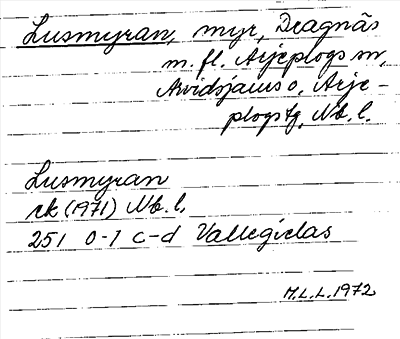 Lusmyran, myr, Dragnäs
m. fl. Arjeplogs sn,
Arvidsjaurs o. Arje-
plogs tg, Nb. l.
Lusmyran
rk (1971) Nb. l.
251 0-1 c-d Vallegielas
M.L.L. 1972